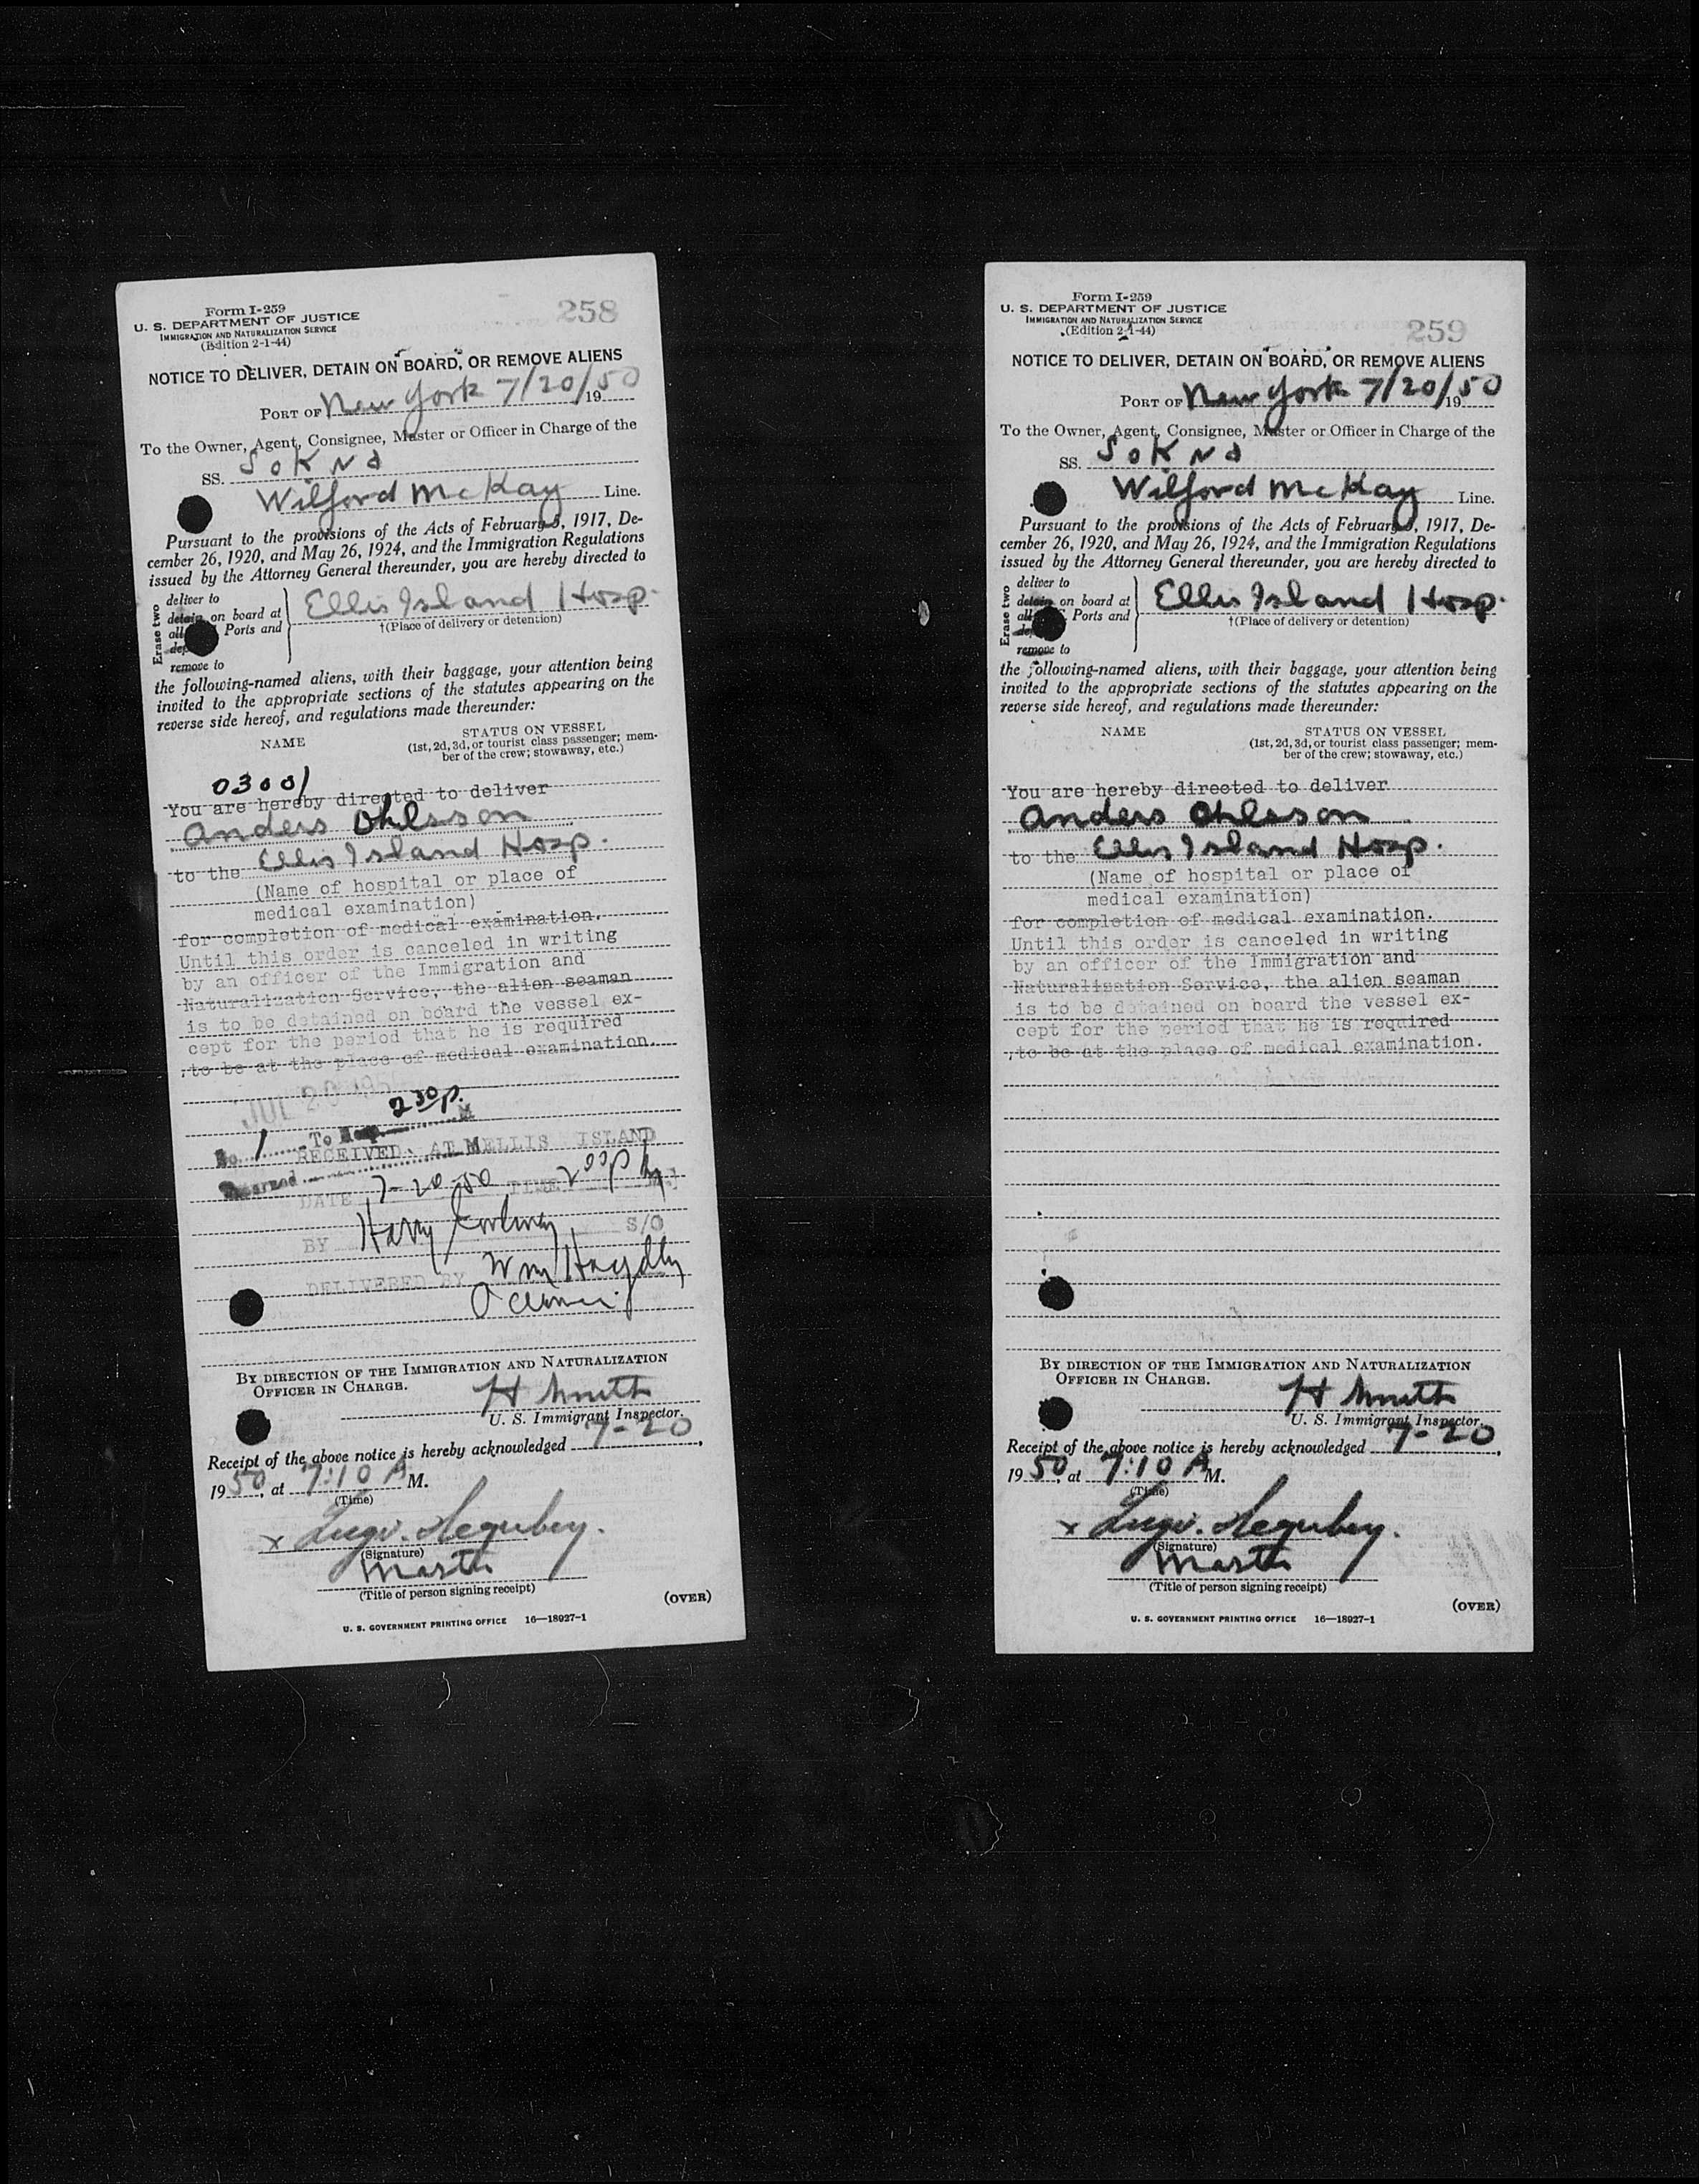 258
Form I-259
U. S. DEPARTMENT OF JUSTICE
IMMIGRATION AND NATURALIZATION SERVICE
(Edition 2-1-44)
NOTICE TO DELIVER, DETAIN ON BOARD, OR REMOVE ALIENS
PORT OF New York 7/20/1950
To the Owner, Agent, Consignee, Master or Officer in Charge of the
SS. SOKNA
Wilford McKay Line.
Pursuant to the provisions of the Acts of February 5, 1917, De-
cember 26, 1920, and May 26, 1924, and the Immigration Regulations
issued by the Attorney General thereunder, you are hereby directed to
Erase two
deliver to
detain on board at
all Ports and
remove to
Ellis Island Hosp.
†(Place of delivery or detention)
the following-named aliens, with their baggage, your attention being
invited to the appropriate sections of the statutes appearing on the
reverse side hereof, and regulations made thereunder:
NAME STATUS ON VESSEL
(1st, 2d, 3d, or tourist class passenger; mem-
ber of the crew; stowaway, etc.)
0300/
You are hereby directed to deliver
Anders Ohlsson
to the Ellis Island Hosp.
(Name of hospital or place of
medical examination)
for completion of medical examination.
Until this order is canceled in writing
by an officer of the Immigration and
Naturalization Service, the alien seaman
is to be detained on board the vessel ex-
cept for the period that he is required
to be at the place of medical examination.
JUL 20 195
230p. M
No. 1 To Hosp.
RECEIVED AT ELLIS ISLAND
DATE 7-20-50 TIME 200p
BY Harry S/O
DELIVERED BY Wm
BY DIRECTION OF THE IMMIGRATION AND NATURALIZATION
OFFICER IN CHARGE.
H Smith
U. S. Immigrant Inspector.
Receipt of the above notice is hereby acknowledged 7-20,
1950, at 7:10 A M.
(Time)
x
(Signature)
Master
(Title of person signing receipt)
(OVER)
U. S. GOVERNMENT PRINTING OFFICE 16—18927-1
259
Form I-259
U. S. DEPARTMENT OF JUSTICE
IMMIGRATION AND NATURALIZATION SERVICE
(Edition 2-1-44)
NOTICE TO DELIVER, DETAIN ON BOARD, OR REMOVE ALIENS
PORT OF New York 7/20/1950
To the Owner, Agent, Consignee, Master or Officer in Charge of the
SS. SOKNA
Wilford McKay Line.
Pursuant to the provisions of the Acts of February 5, 1917, De-
cember 26, 1920, and May 26, 1924, and the Immigration Regulations
issued by the Attorney General thereunder, you are hereby directed to
Erase two
deliver to
detain on board at
all Ports and
remove to
Ellis Island Hosp.
†(Place of delivery or detention)
the following-named aliens, with their baggage, your attention being
invited to the appropriate sections of the statutes appearing on the
reverse side hereof, and regulations made thereunder:
NAME STATUS ON VESSEL
(1st, 2d, 3d, or tourist class passenger; mem-
ber of the crew; stowaway, etc.)
You are hereby directed to deliver
Anders Ohlsson
to the Ellis Island Hosp.
(Name of hospital or place of
medical examination)
for completion of medical examination.
Until this order is canceled in writing
by an officer of the Immigration and
Naturalization Service, the alien seaman
is to be detained on board the vessel ex-
cept for the period that he is required
to be at the place of medical examination.
BY DIRECTION OF THE IMMIGRATION AND NATURALIZATION
OFFICER IN CHARGE.
H Smith
U. S. Immigrant Inspector.
Receipt of the above notice is hereby acknowledged 7-20,
1950, at 7:10 A M.
(Time)
x
(Signature)
Master
(Title of person signing receipt)
(OVER)
U. S. GOVERNMENT PRINTING OFFICE 16—18927-1